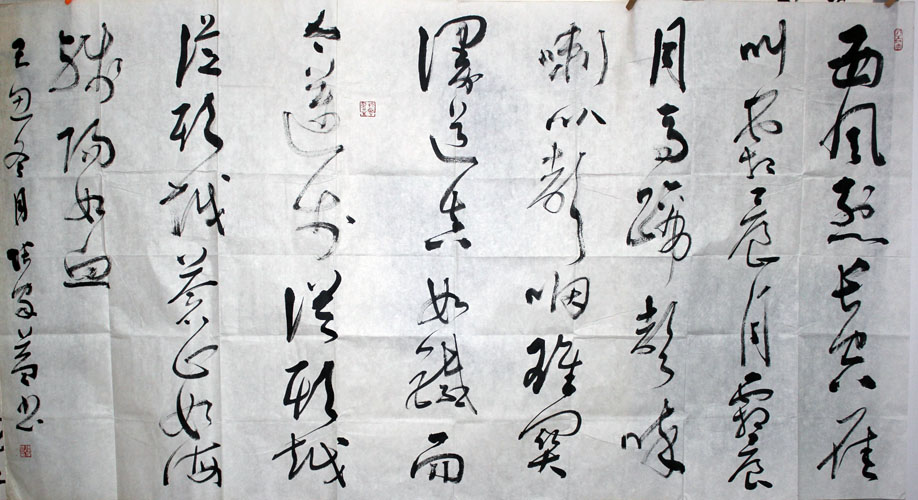 西風烈長空雁
叫霜晨月霜晨
月馬蹄聲碎
喇叭聲咽雄關
漫道真如鐵而
今邁步從頭越
從頭越蒼山如海
殘陽如血
冬月
書